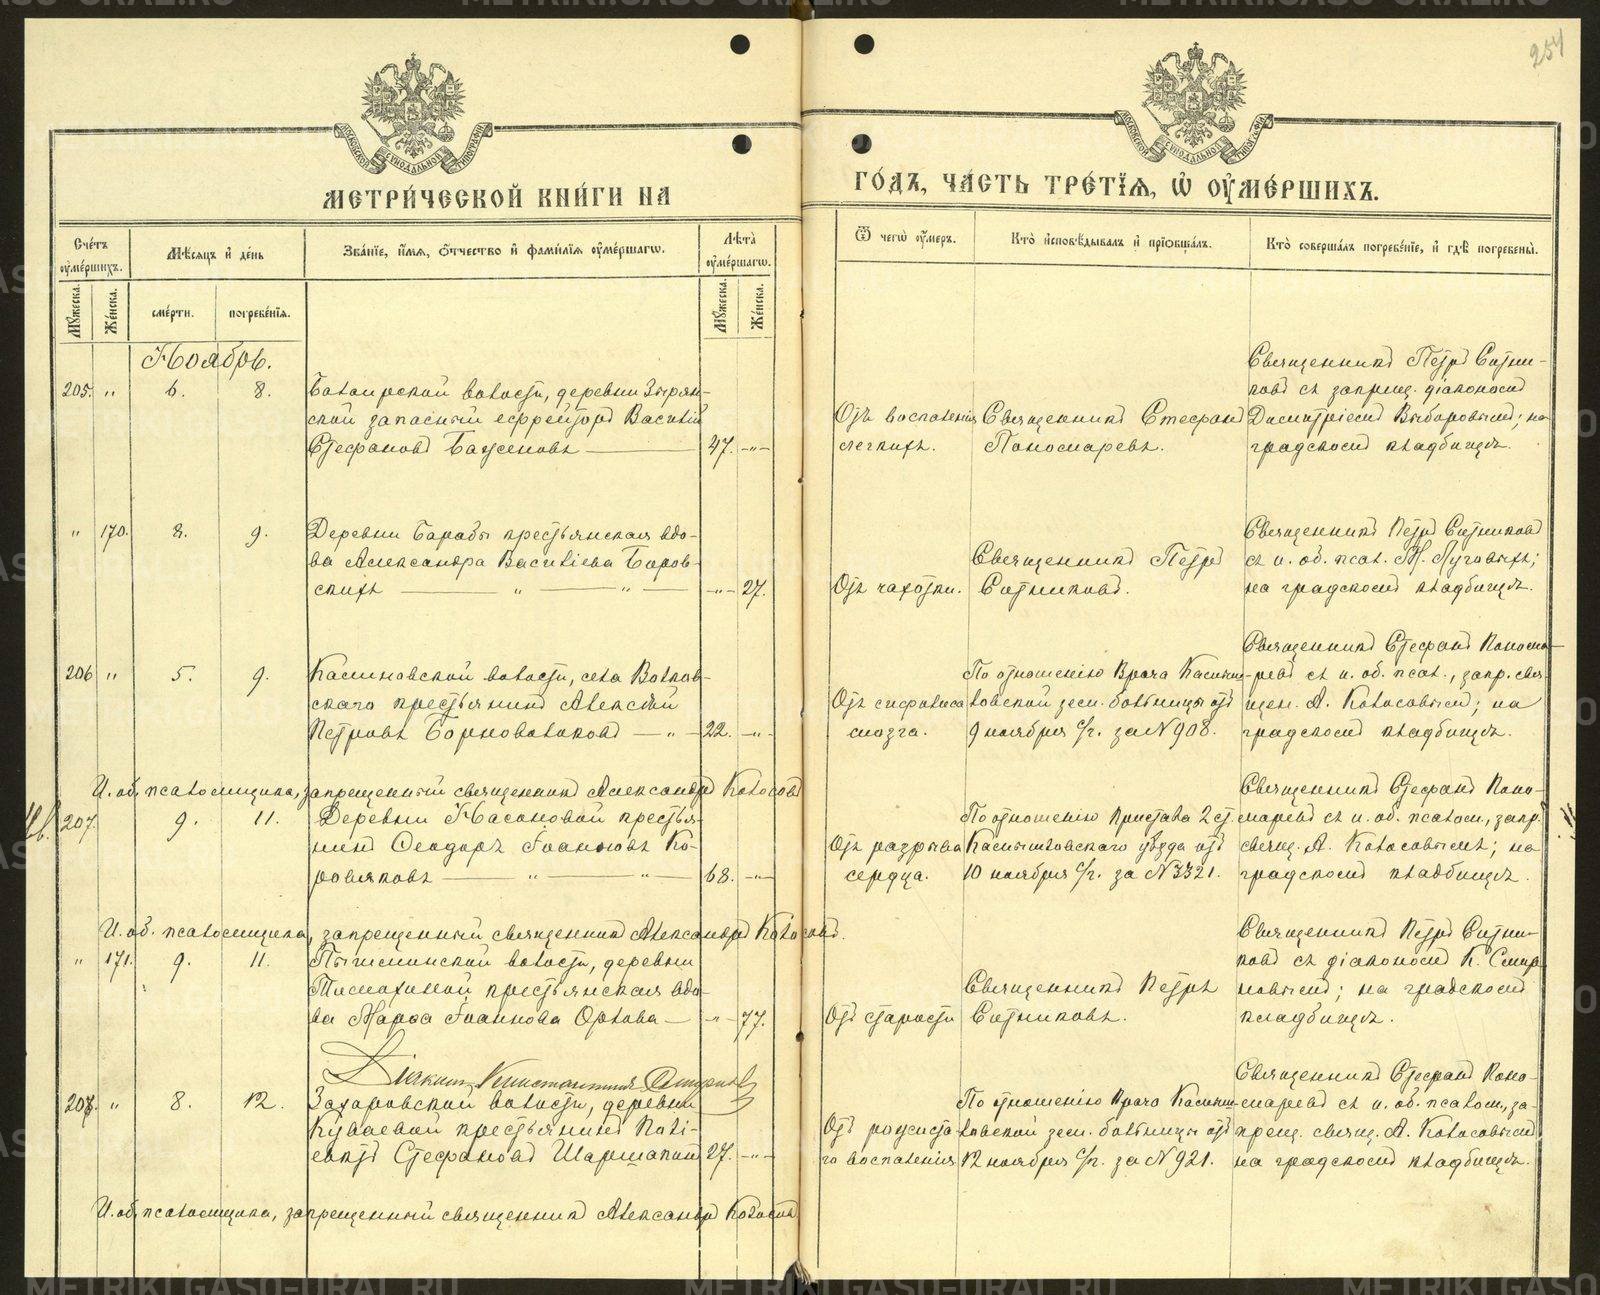 254
МЕТРИ́ЧЕСКОЙ КНИ́ГИ НА
ГО́ДЪ, ЧА́СТЬ ТРЕ́ТЇѦ, Ѡ҆ ОУ҆МЕ́РШИХЪ.
Сче́тъ оу҆ме́ршихъ.
Мꙋ́жеска.
Же́нска.
Мѣ́сѧцъ и҆ де́нь
сме́рти.
погребе́нїѧ.
Зва́нїе, и҆́мѧ, ѻ҆́тчество и҆ фами́лїѧ оу҆ме́ршагѡ.
Лѣ́та оу҆ме́ршагѡ.
Мꙋ́жеска.
Же́нска.
Ѿ чегѡ̀ оу҆́меръ.
Кто̀ и҆сповѣ́дывалъ и҆ прїѻбща́лъ.
Кто̀ соверша́лъ погребе́нїе, и҆ гдѣ̀ погребены̀.
Ноябрь.
205. " 6. 8.
Балаирской волости, деревни Зырян-
ской запасный ефрейторъ Василій
Стефановъ Баженовъ — 47. -"-
Отъ воспаленія
легкихъ.
Священникъ Стефанъ
Пономаревъ.
Священникъ Петръ Ситни-
ковъ съ запрещ. діакономъ
Димитріемъ Выборовымъ; на
градскомъ кладбищѣ.
" 170. 8. 9.
Деревни Барабы крестьянская вдо-
ва Александра Василіева Боров-
скихъ — " — " — -"- 27.
Отъ чахотки.
Священникъ Петръ
Ситниковъ.
Священникъ Петръ Ситниковъ
съ и. об. псал. Н. Луговыхъ;
на градскомъ кладбищѣ.
206 " 5. 9.
Калиновской волости, села Волков-
скаго крестьянинъ Алексѣй
ПетровъБорноволоковъ — " — 22. -"-
Отъ сифилиса
мозга.
По отношенію Врача Камыш-
ловской зем. больницы отъ
9 ноября с/г. за № 908.
Священникъ Стефанъ Понома-
ревъ съ и. об. псал., запр. свя-
щен. А. Колосовымъ; на
градскомъ кладбищѣ.
И. об. псаломщика, запрещенный священникъ Александръ Колосовъ
207. " 9. 11.
Деревни Насоновой крестья-
нинъ Ѳеодоръ Іоанновъ Ко-
ровяковъ — " — " — 68. -"-
Отъ разрыва
сердца.
По отношенію Пристава 2 ст.
Камышловскаго уѣзда отъ
10 ноября с/г. за № 3321.
Священникъ Стефанъ Поно-
маревъ съ и. об. псалом., запр.
свящ. А. Колосовымъ; на
градскомъ кладбищѣ.
И. об. псаломщика, запрещенный священникъ Александръ Колосовъ.
" 171. 9. 11.
Пышминской волости, деревни
Тимохиной крестьянская вдо-
ва Марѳа Іоаннова Орлова — -"- 77.
Отъ старости
Священникъ Петръ
Ситниковъ.
Священникъ Петръ Ситни-
ковъ съ діакономъ К. Смир-
новымъ; на градскомъ
кладбищѣ.
Діаконъ Константинъ Смирновъ
208. " 8. 12.
Захаровской волости, деревни
Куваевой крестьянинъ Полі-
евктъ Стефановъ Шаршапинъ 27. -"-
Отъ рожиста-
го воспаленія
По отношенію Врача Камыш-
ловской зем. больницы отъ
12 ноября с/г. за № 921.
Священникъ Стефанъ Поно-
маревъ съ и. об. псалом., за-
прещ. свящ. А. Колосовымъ
на градскомъ кладбищѣ.
И. об. псаломщика, запрещенный священникъ Александръ Колосовъ
METRIKI.GASO-URAL.RU